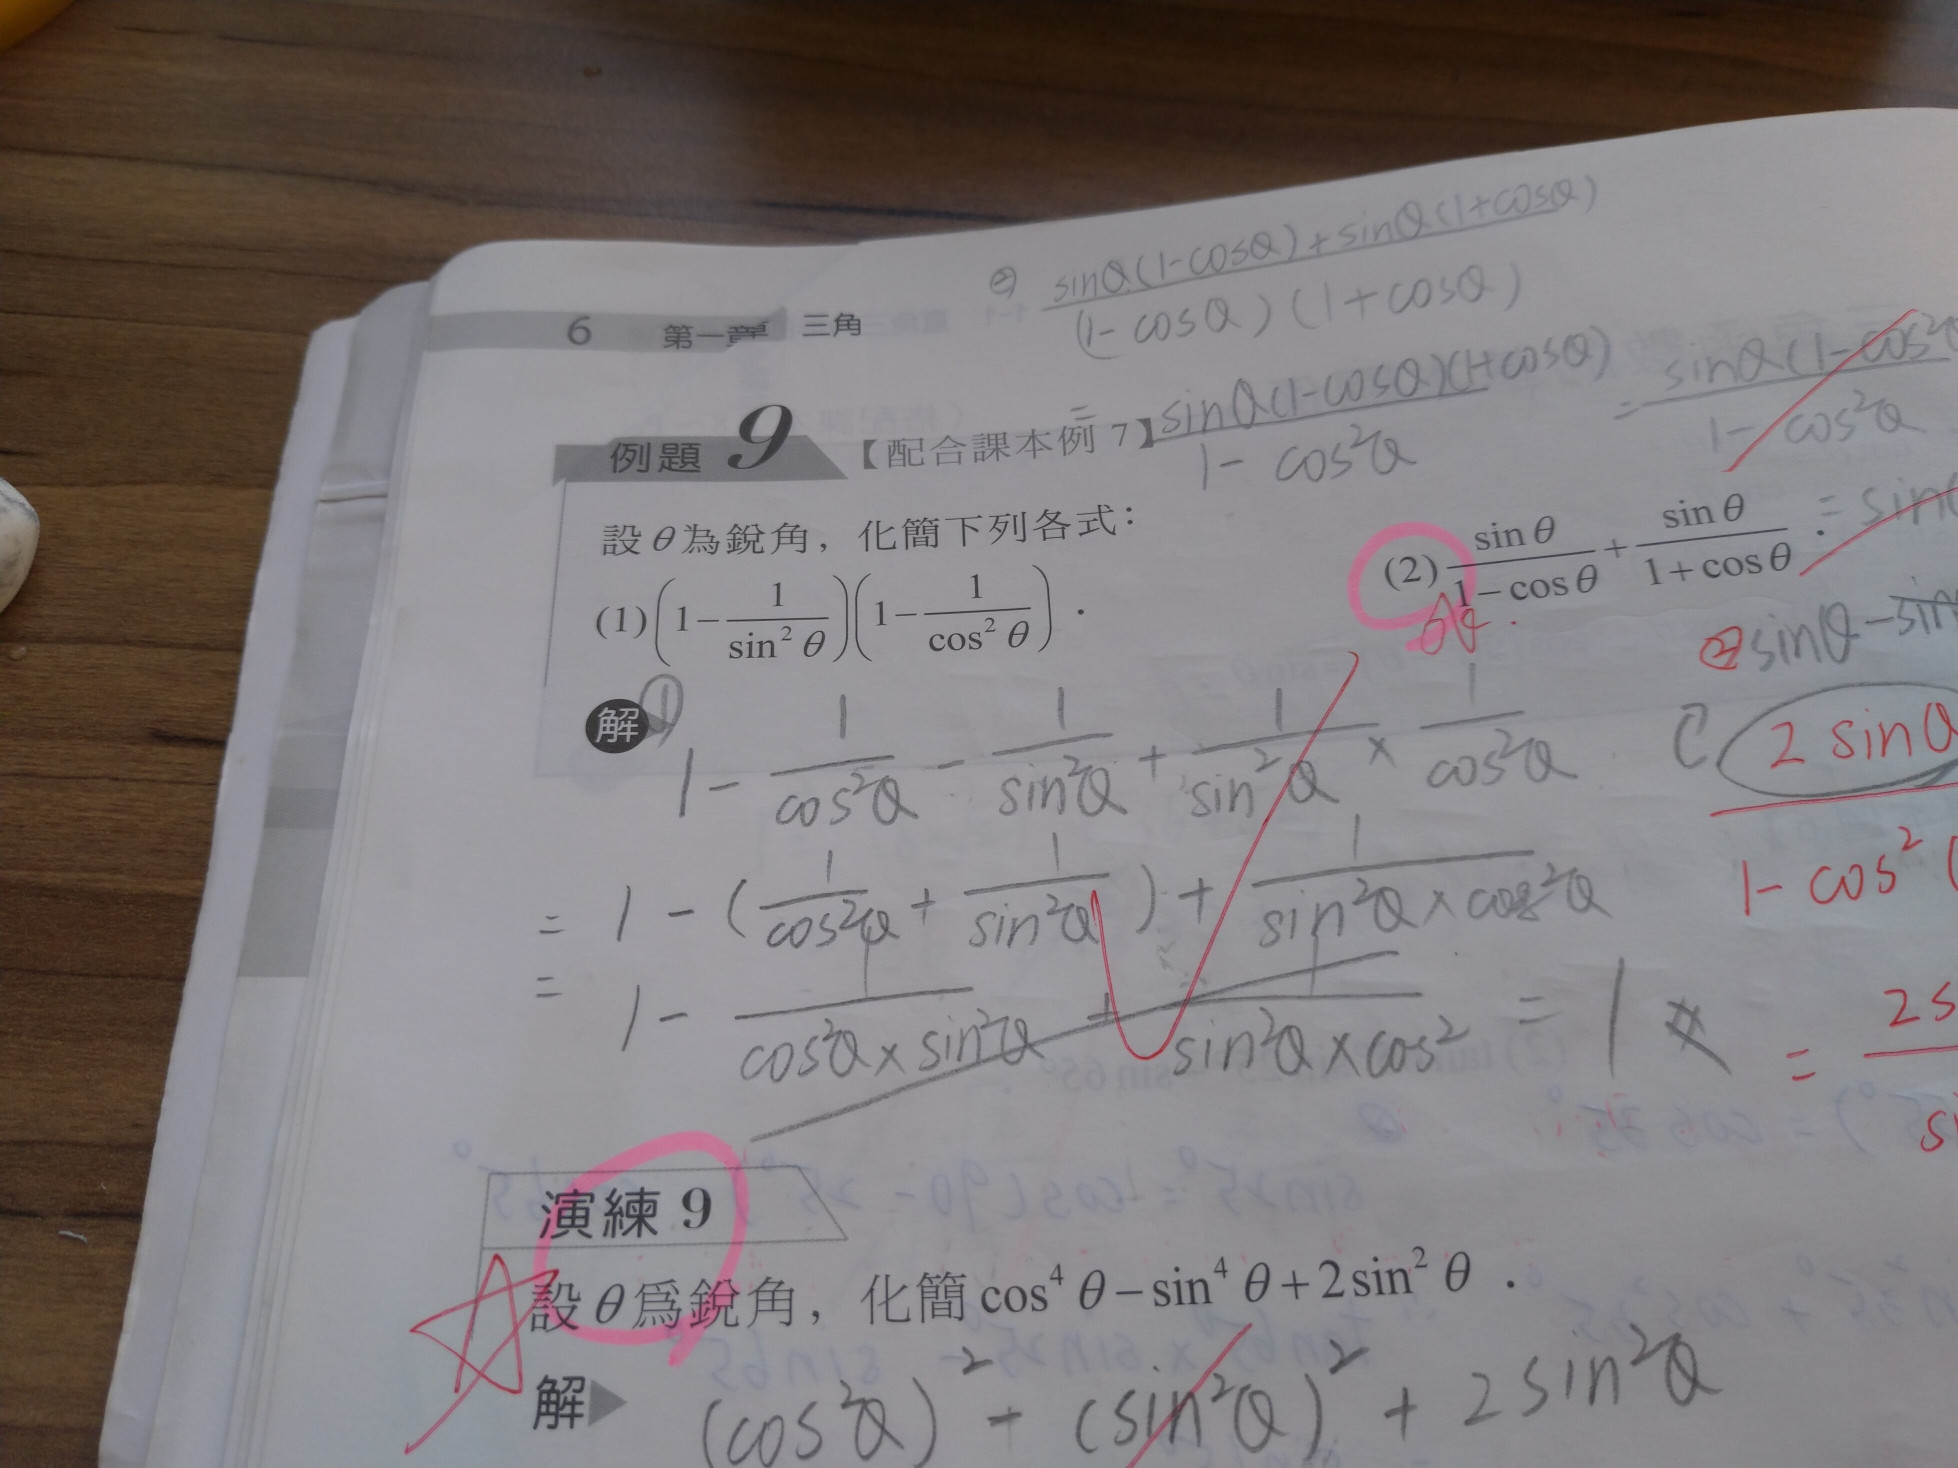 ② sinθ(1-cosθ)+sinθ(1+cosθ) / (1-cosθ)(1+cosθ)
6 第一章 三角
= sinθ(1-cosθ)(1+cosθ) / 1-cos²θ = sinθ(1-cos² / 1-cos²θ
例題 9 【配合課本例 7】
設θ為銳角，化簡下列各式：
(1) (1 - 1/sin²θ)(1 - 1/cos²θ) . (2) sinθ/1-cosθ + sinθ/1+cosθ . = sin
② sinθ-sin
解 ① 1 - 1/cos²θ - 1/sin²θ + 1/sin²θ × 1/cos²θ
2 sinθ / 1-cos²
= 1 - (1/cos²θ + 1/sin²θ) + 1/sin²θ×cos²θ
= 1 - 1/cos²θ×sin²θ + 1/sin²θ×cos² = 1
= 2s / si
演練 9
設θ為銳角，化簡 cos⁴θ-sin⁴θ+2sin²θ .
解 (cos²θ)² - (sin²θ)² + 2sin²θ